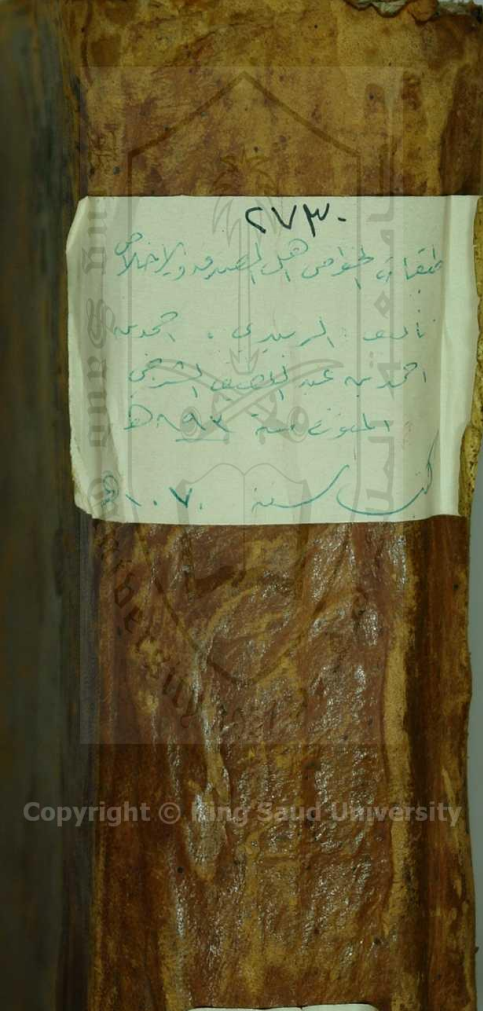 ٢٧٣٠
طبقات الخواص اهل الصدق والاخلاص
تأليف الزبيدي ، احمد بن
احمد بن عبد اللطيف الشرجي
المتوفى سنة ٨٩٣ هـ
كتب سنة ١٠٧٠ هـ
Copyright © King Saud University